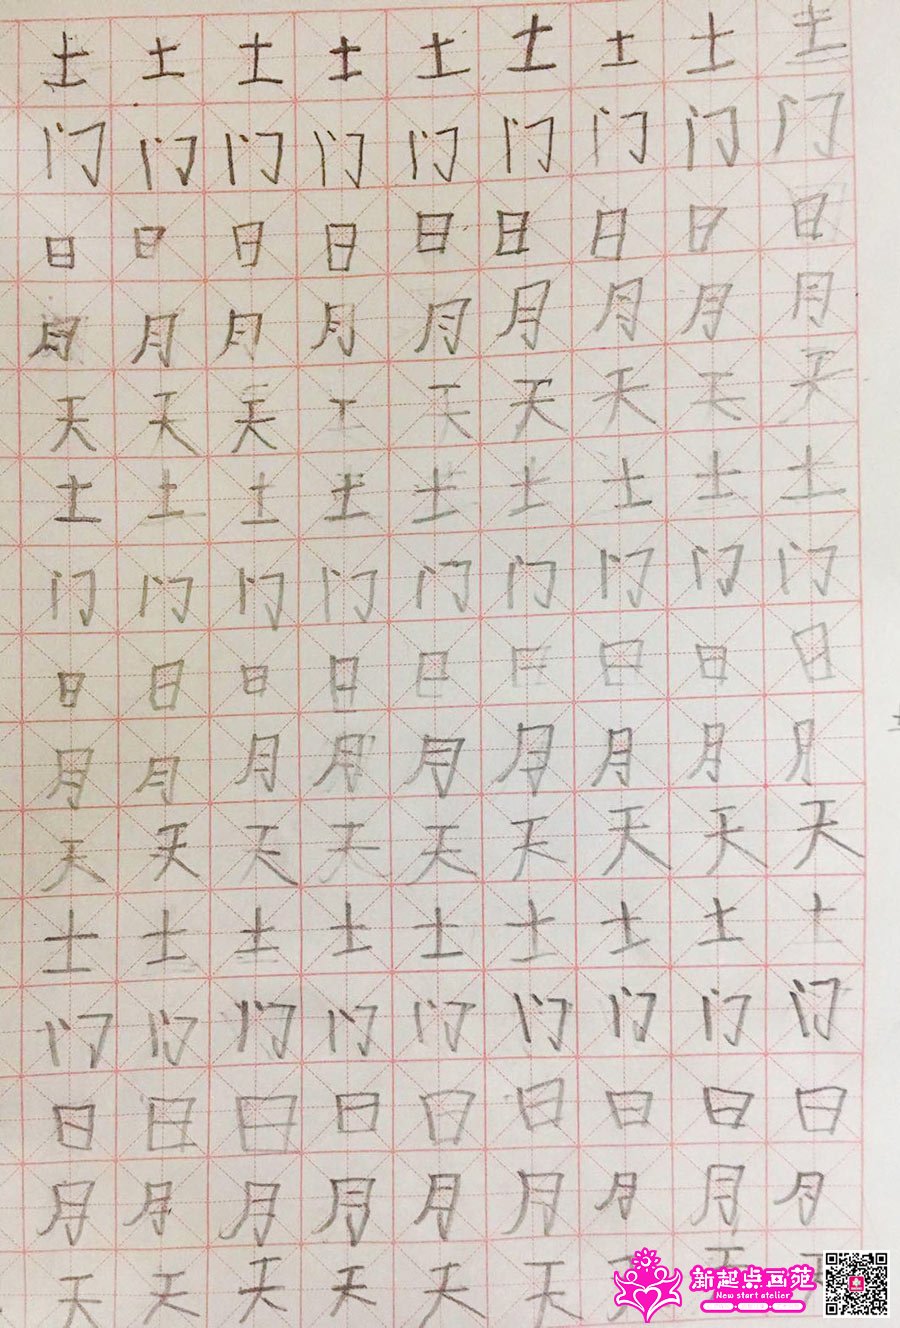 土土土土土土土土土
门门门门门门门门门
日日日日日日日日日
月月月月月月月月月
天天天天天天天天天
土土土土土土土土土
门门门门门门门门门
日日日日日日日日日
月月月月月月月月月
天天天天天天天天天
土土土土土土土土土
门门门门门门门门门
日日日日日日日日日
月月月月月月月月月
天天天天天天天天
新起点画苑
New start atelier